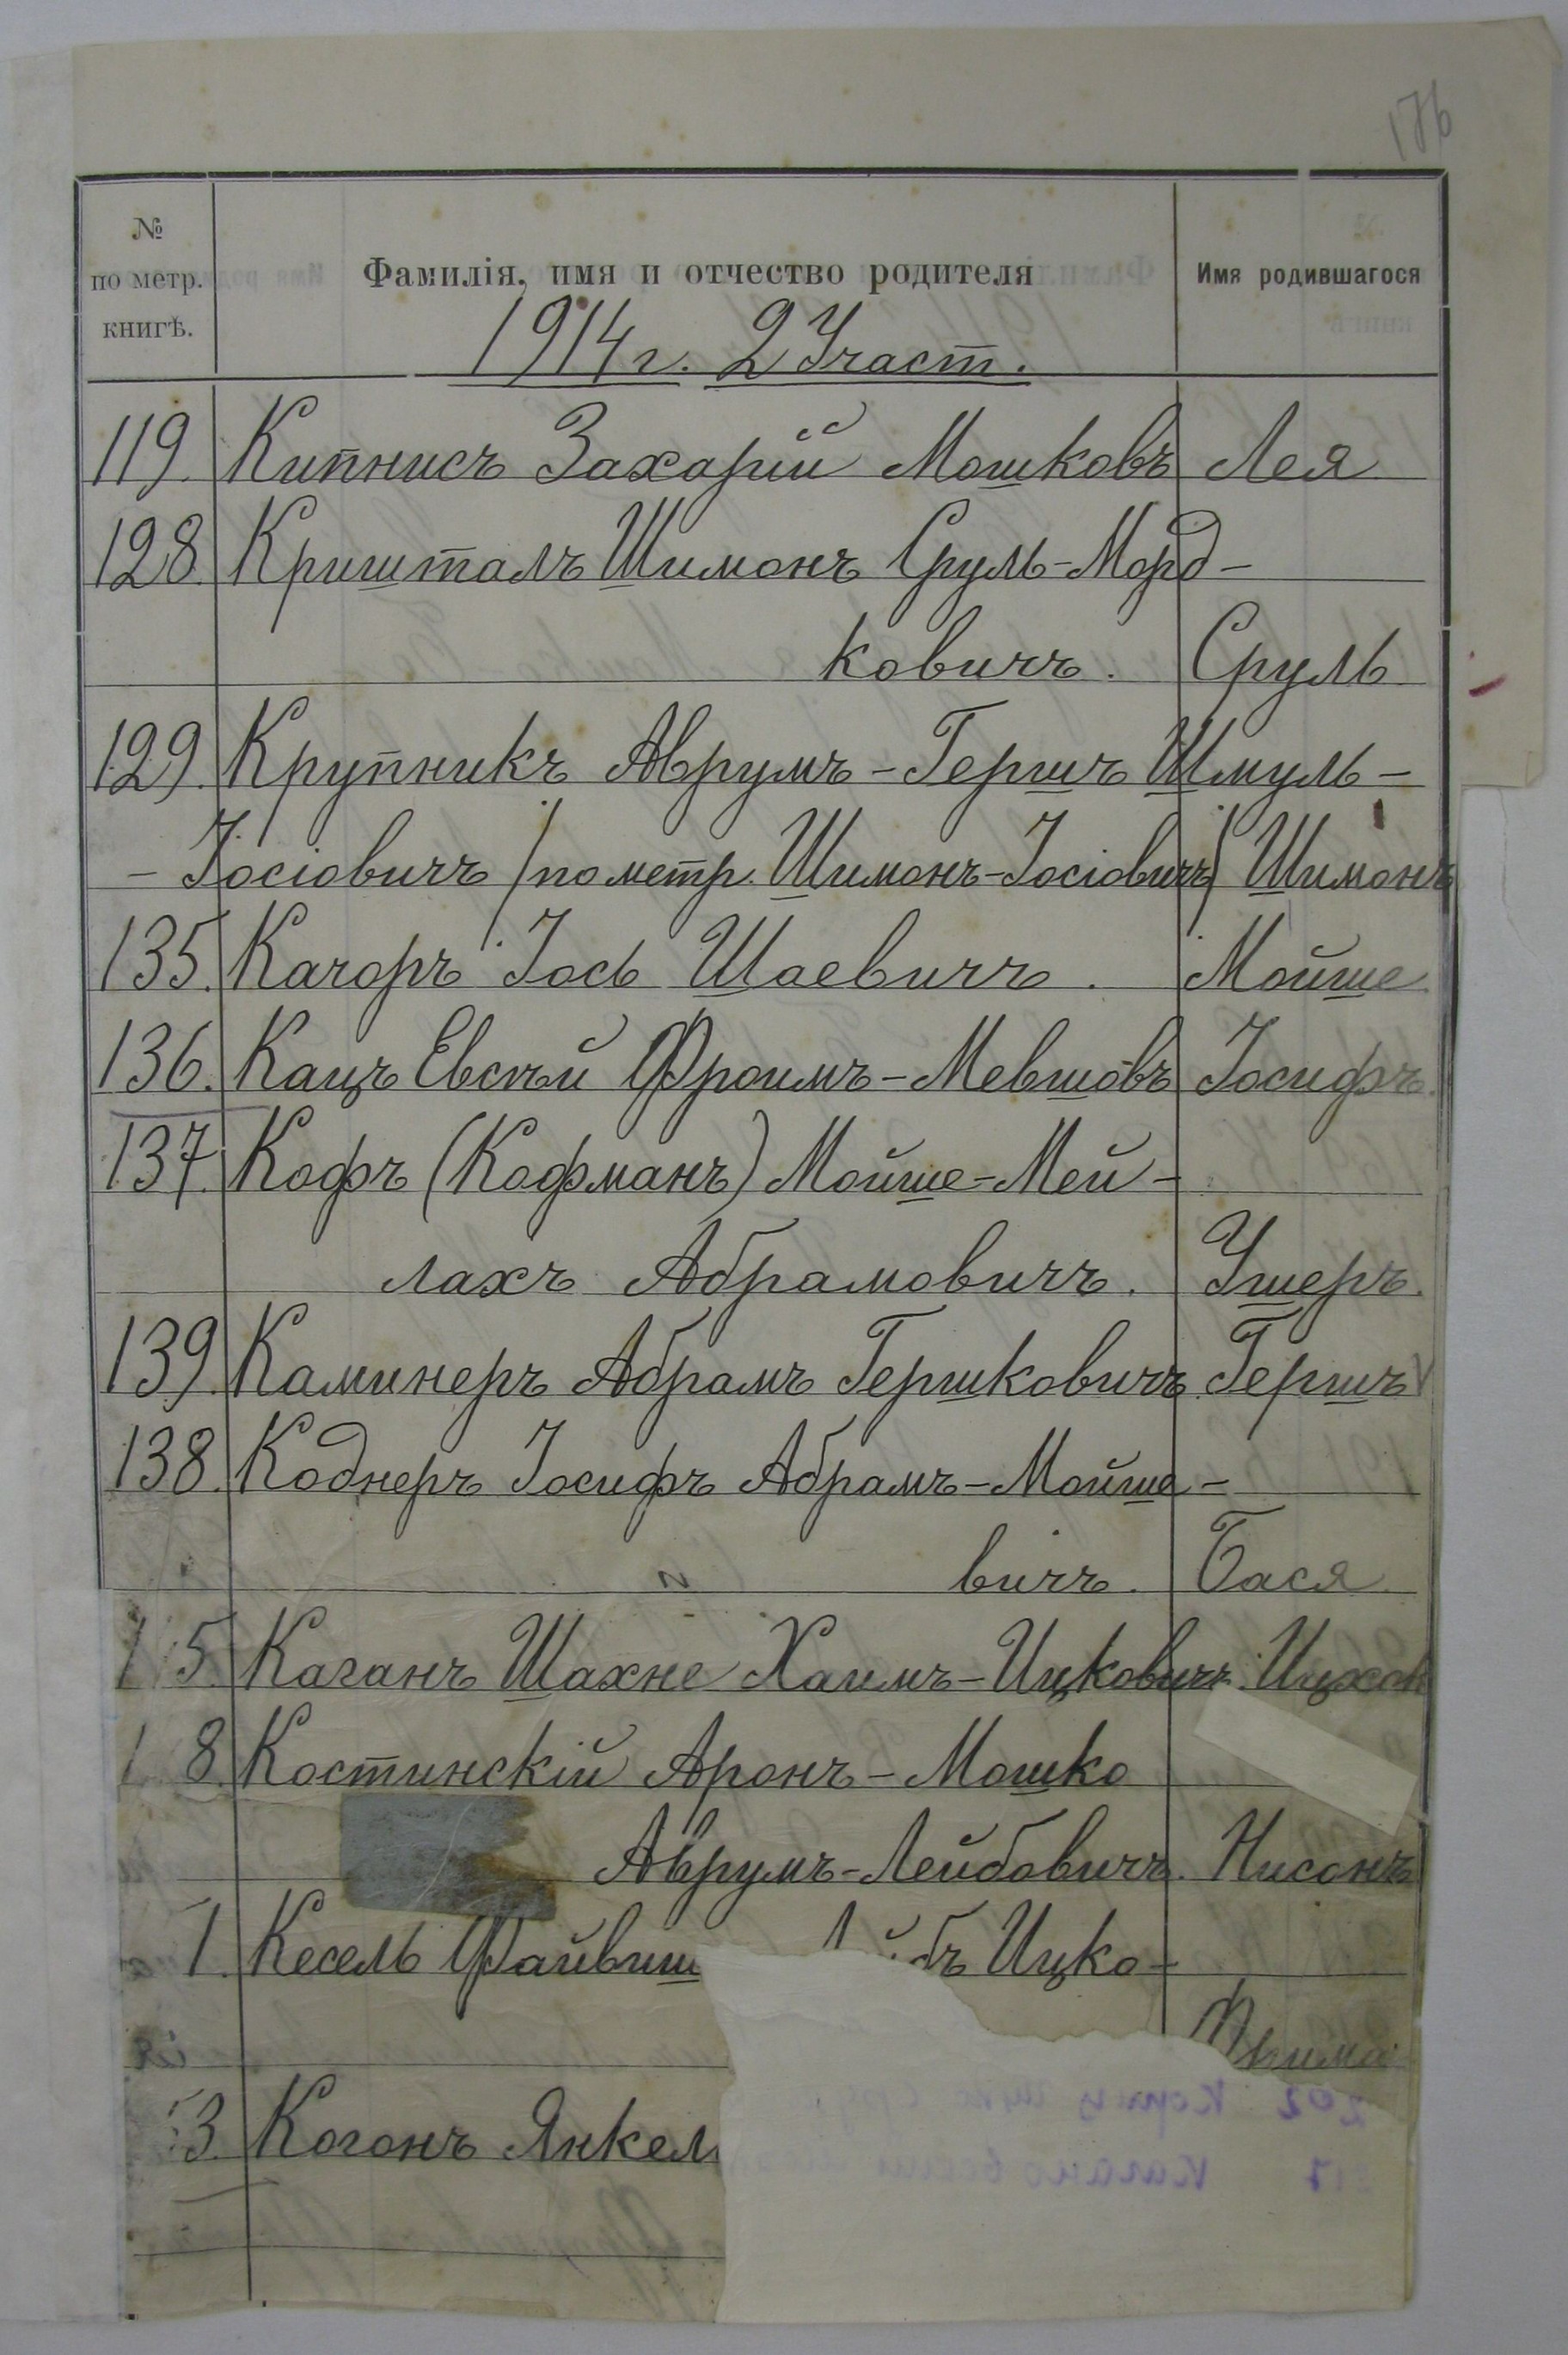 176
№ по метр. книгѣ. Фамилія, имя и отчество родителя Имя родившагося
1914 г. 2 Участ.
119. Кипнисъ Захарій Мошковъ Лея
128. Кришталъ Шимонъ Сруль-Морд-
ковичъ. Сруль
129. Крупникъ Аврумъ-Гершъ Шмуль-
- Іосіовичъ /по метр. Шимонъ-Іосіовичъ/ Шимонъ
135. Качоръ Іось Шаевичъ. Мойше
136. Кацъ Евсѣй Фроимъ-Мевшовъ Іосифъ.
137. Кофъ (Кофманъ) Мойше-Мей-
лахъ Абрамовичъ. Ушеръ.
139. Каминеръ Абрамъ Гершковичъ. Гершъ
138. Коднеръ Іосифъ Абрамъ-Мойше-
вичъ. Бася.
1 5. Каганъ Шахне Хаимъ-Ицковичъ. Ицхок
1 8. Костинскій Аронъ-Мошко
Аврумъ-Лейбовичъ. Нисонъ
1. Кесель Файвиш бъ Ицко-
3. Когонъ Янкел